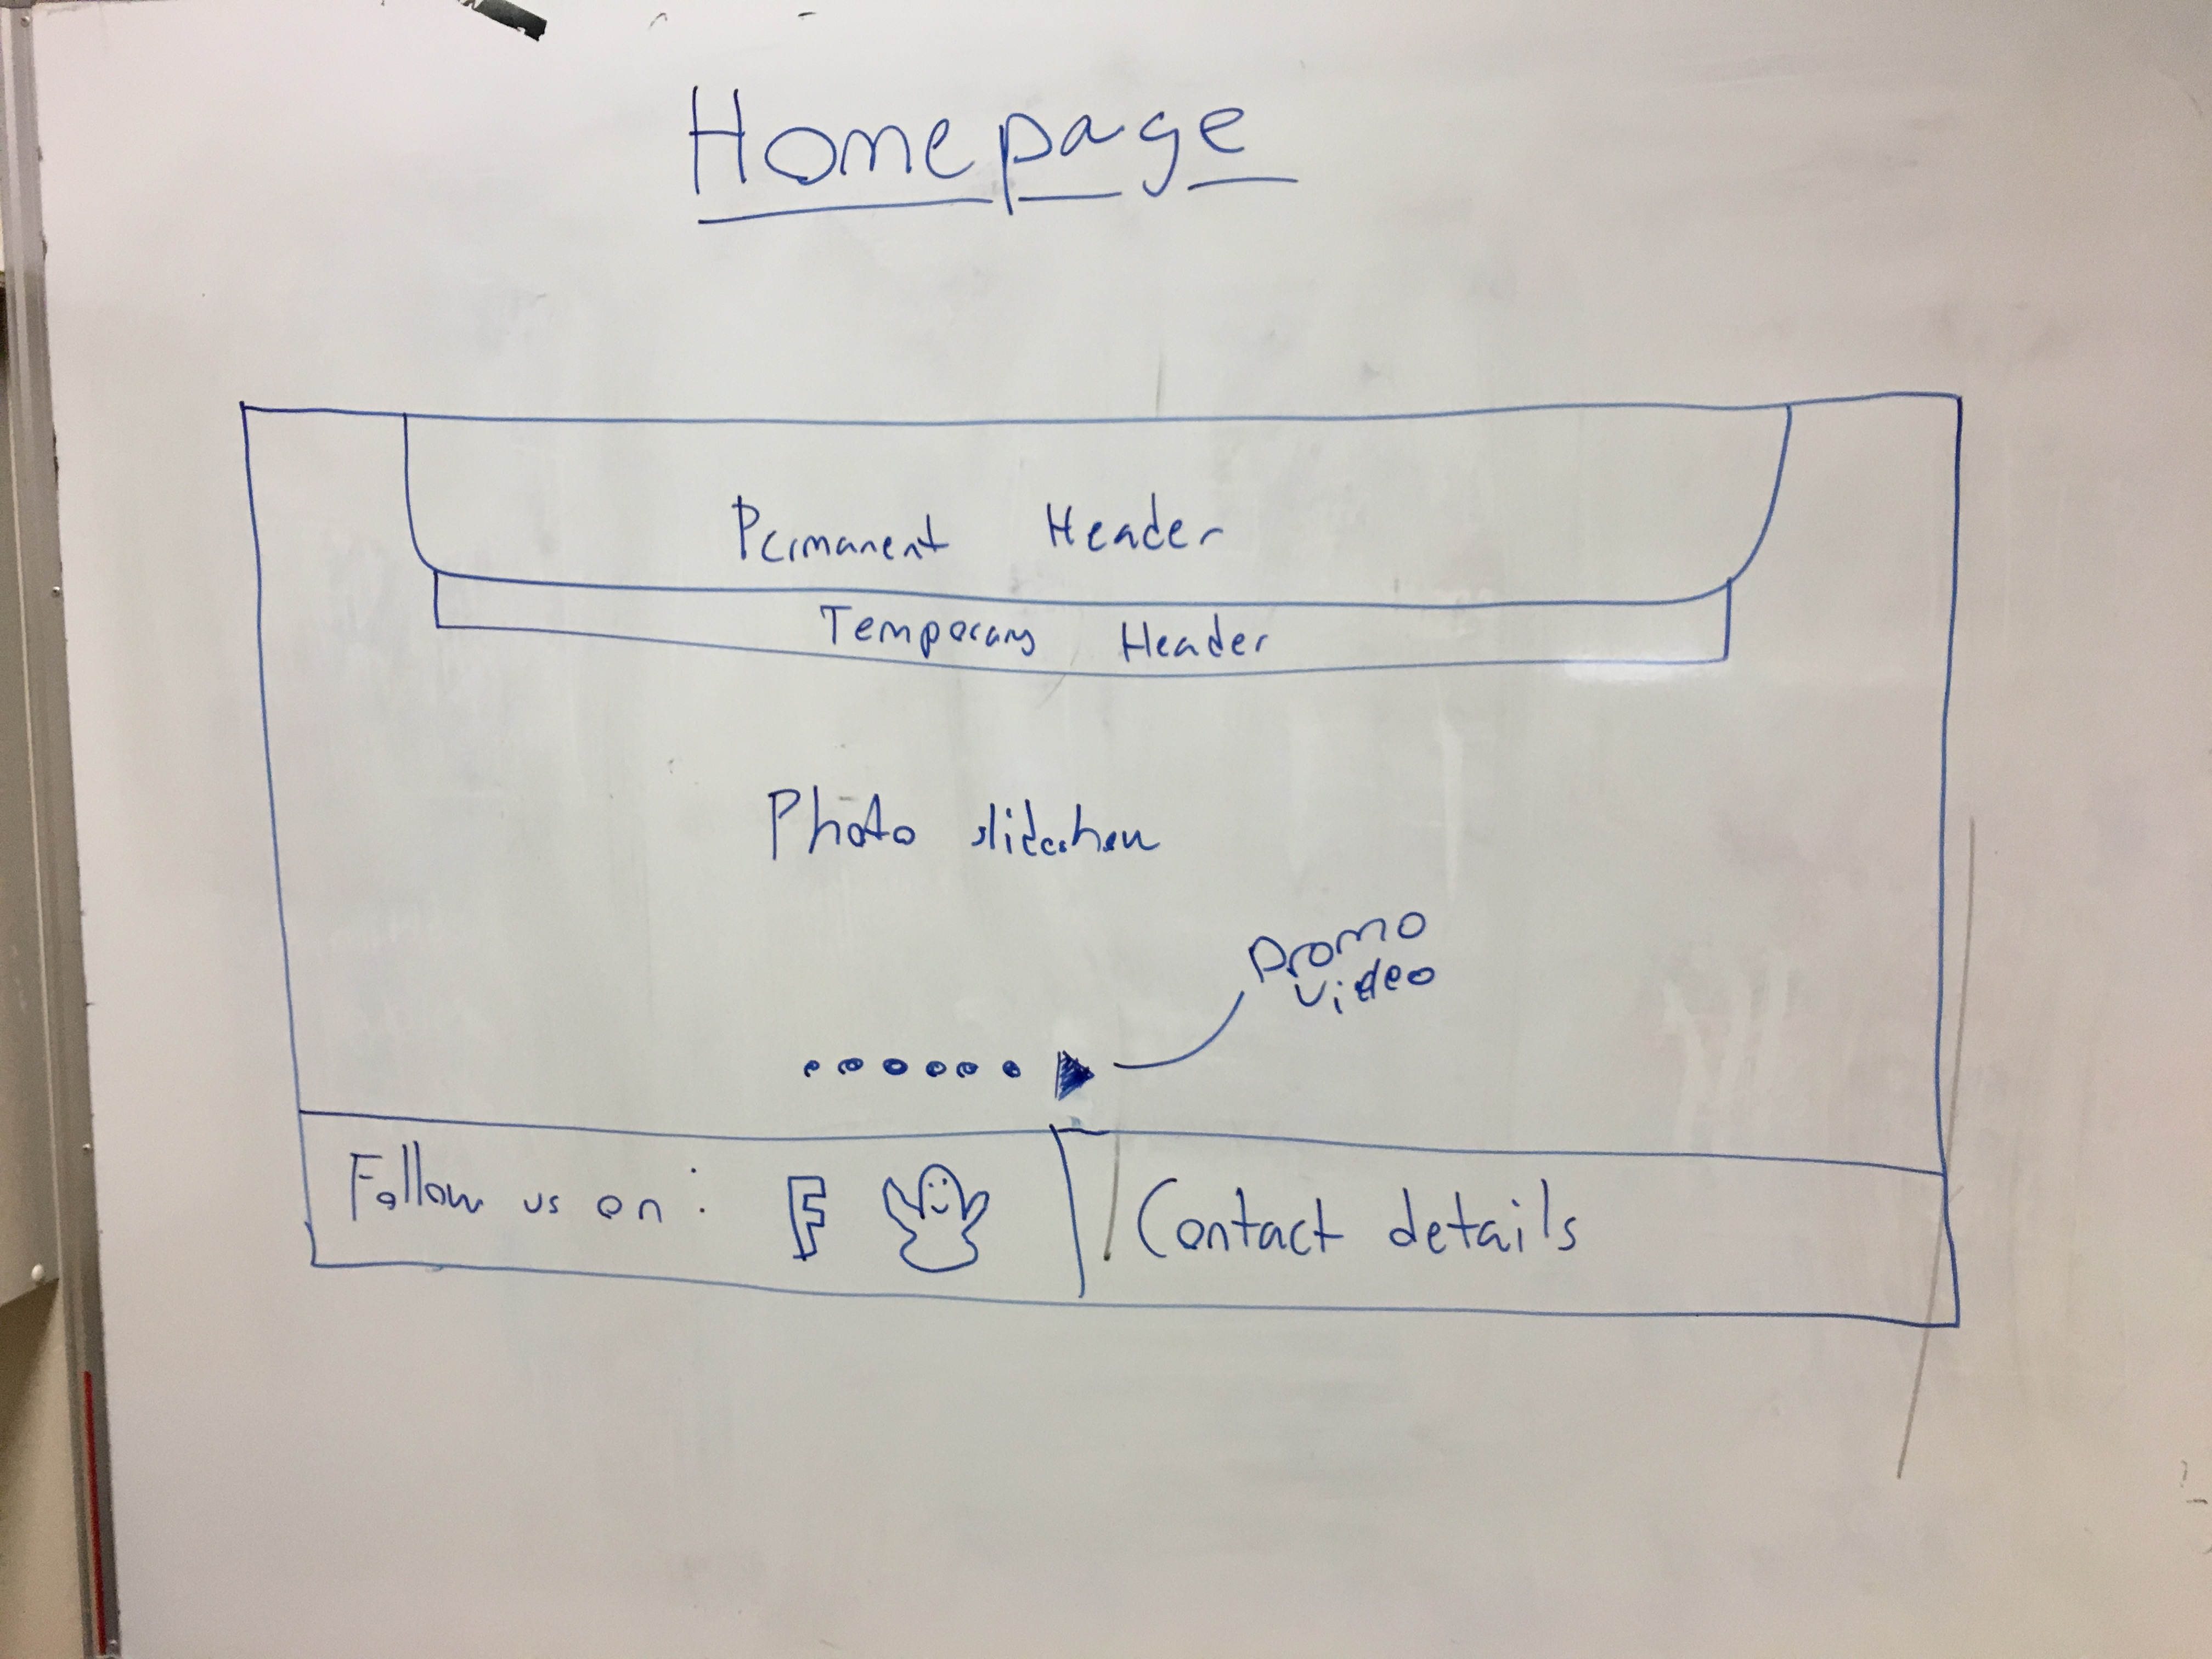 Homepage
Permanent Header
Temporary Header
Photo slideshow
promo
video
Follow us on: F
Contact details